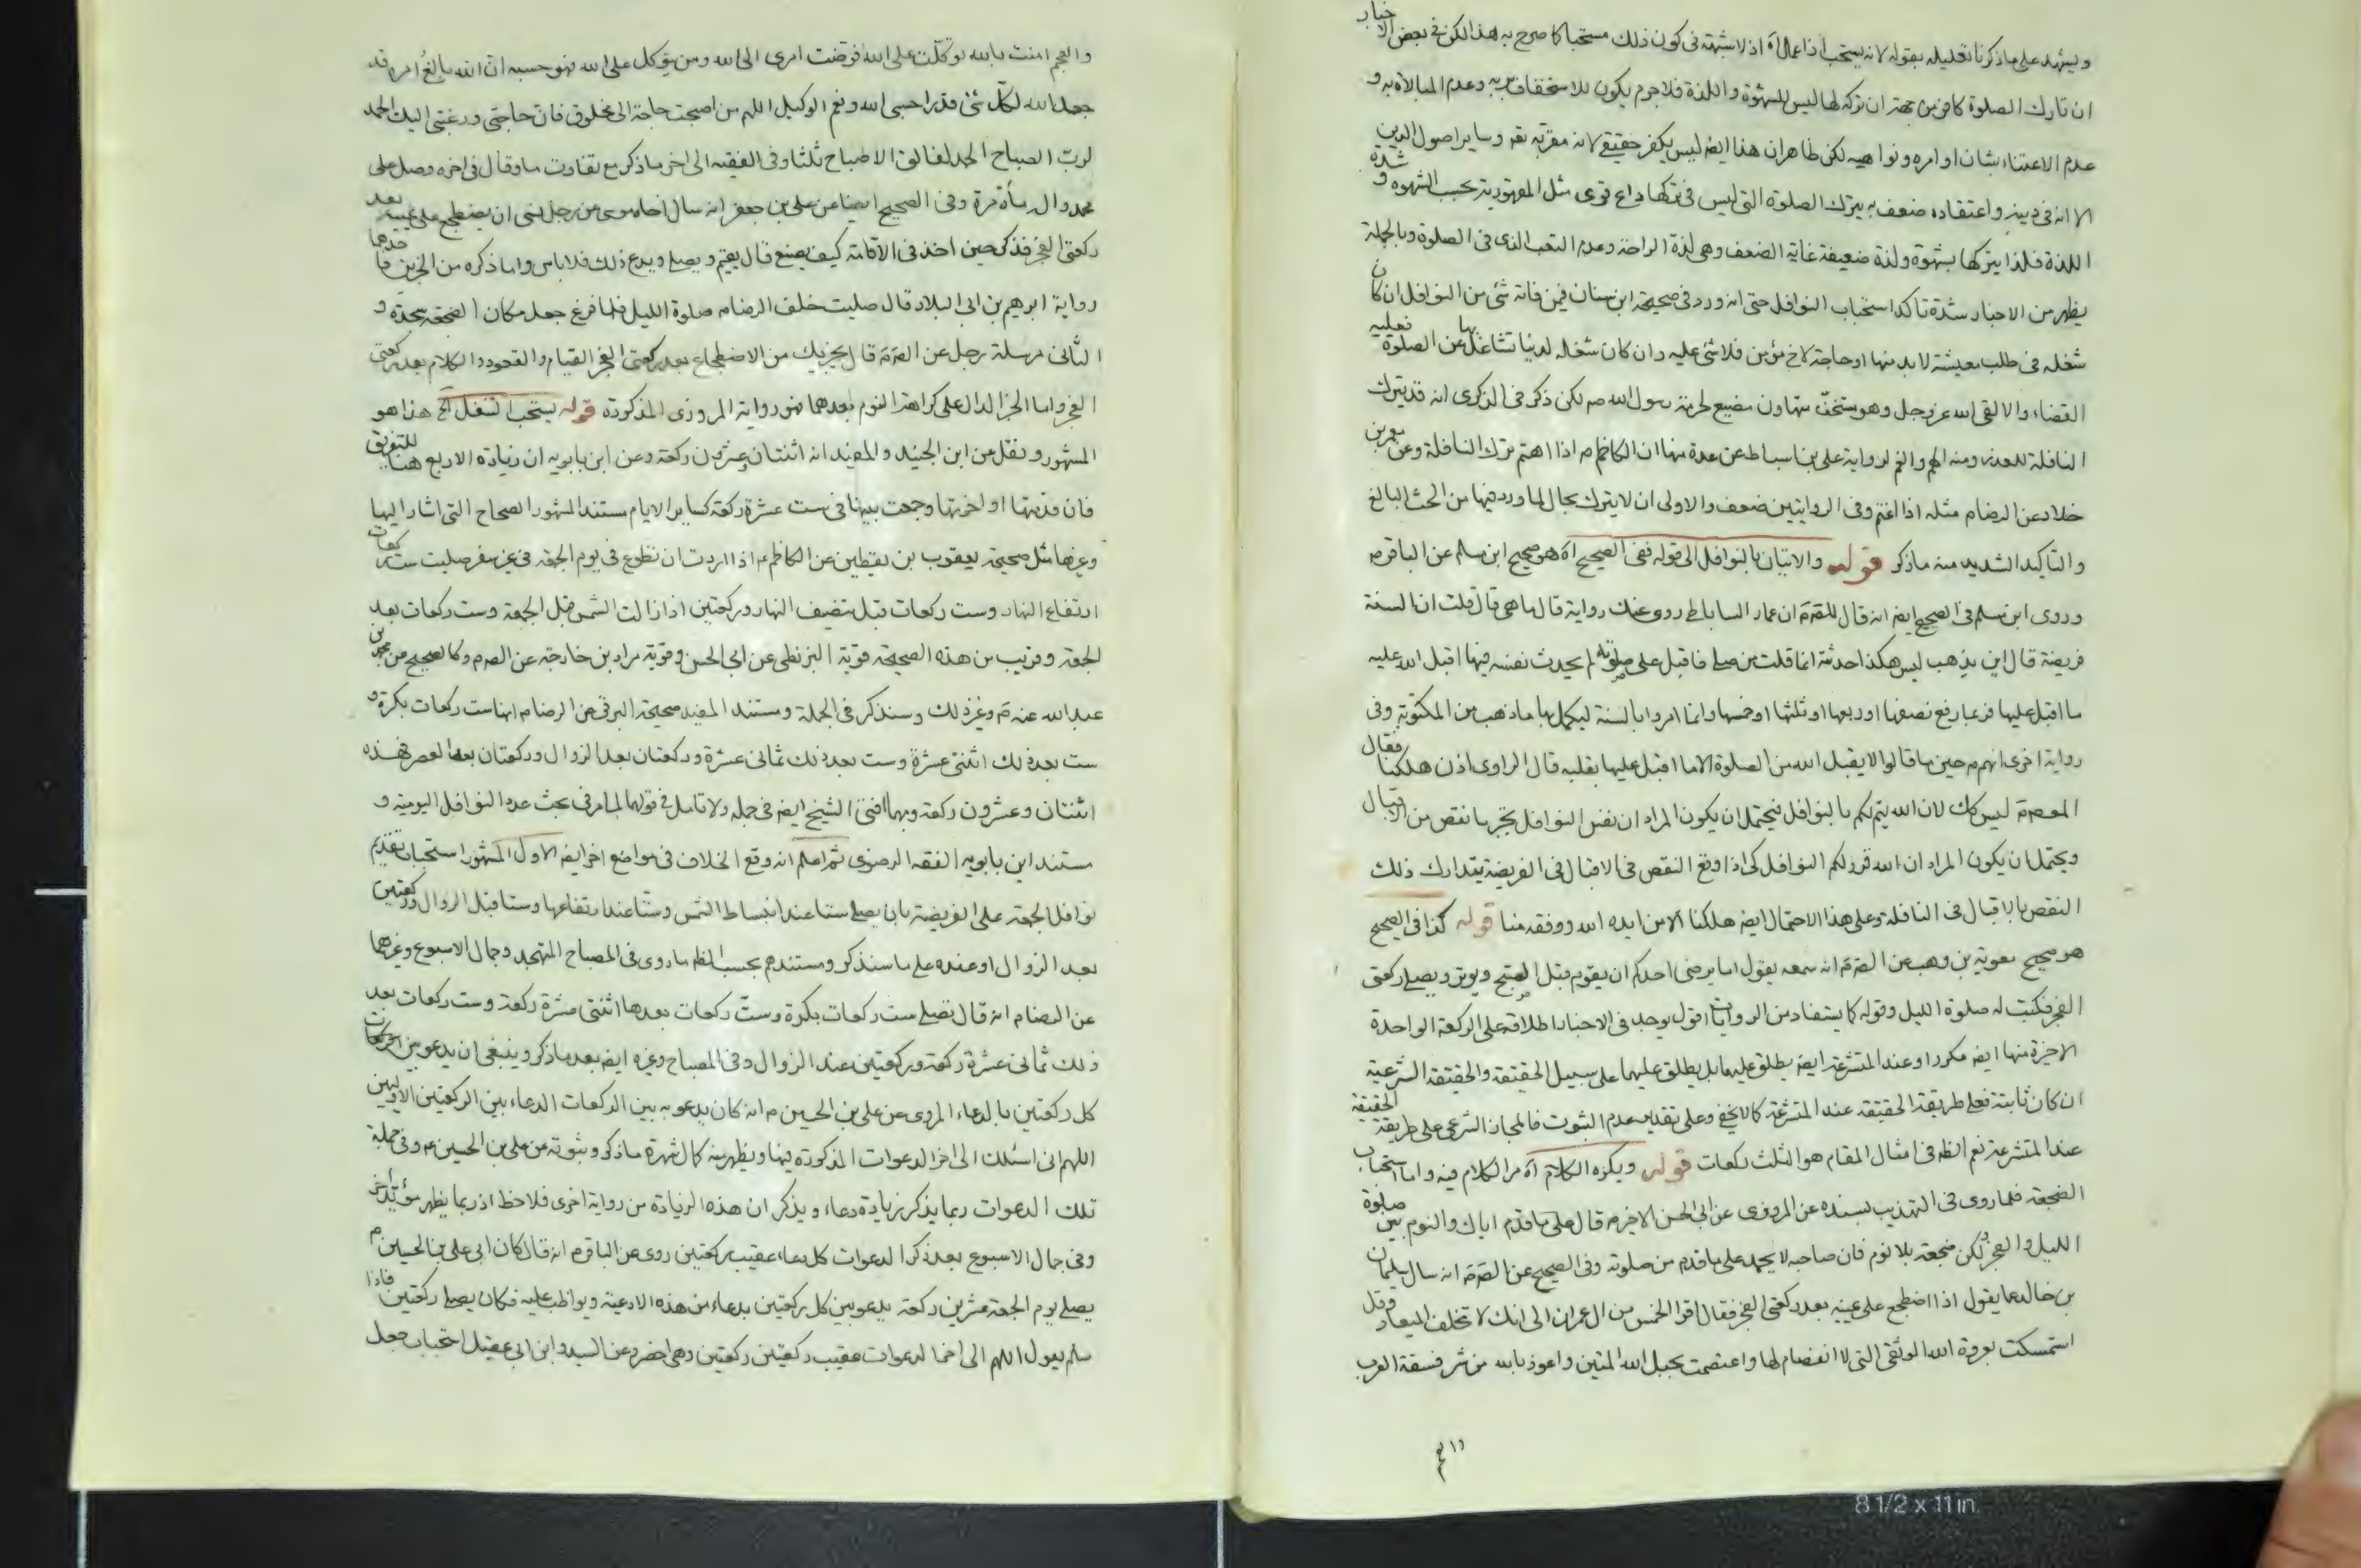 ويشهد على ما ذكرنا تعليله بقوله لانه يستحب اذا عمال اه اذ لا شبهة فى كون ذلك مستحبا كما صرح به هذا لكن فى بعض الاخبار
ان تارك الصلوة كافر من جهة ان تركه لها ليس للشهوة واللذة فلا جرم يكون للاستخفاف به وعدم المبالاة به و
عدم الاعتناء بشان اوامره ونواهيه لكن ظاهر ان هذا ايضا ليس بكفر حقيقى لانه مقر به تعه وساير اصول الدين
الا انه فى دينه واعتقاده ضعف به يترك الصلوة التى ليس فى تركها داع قوى مثل المقهورية بحسب الشهوه و شدة
اللذة فلذا يتركها بشهوة ولذة ضعيفة غاية الضعف وهى لذة الراحة وعدم التعب الذى فى الصلوة وبالجملة
يظهر من الاخبار شدة تاكد استحباب النوافل حتى انه ورد فى صحيحة ابن سنان فيمن فاته شئ من النوافل ان كان
شغله فى طلب معيشة لا بد منها او حاجة لاخ مؤمن فلا شئ عليه وان كان شغله لدنيا تشاغل بها عن الصلوة فعليه
القضاء والا لقى الله عز وجل وهو مستخف متهاون مضيع لحرمة رسول الله ص لكن ذكر فى الذكرى انه قد يترك
النافلة للعذر ومنه الهم والغم لرواية على بن اسباط عن عدة منها ان الكاظم م اذا اهتم ترك النافلة وعن معمر بن
خلاد عن الرضا م مثله اذا اغتم وفى الروايتين ضعف والاولى ان لا يترك بحال لما ورد فيها من الحث البالغ
والتاكيد الشديد منه ما ذكر قوله والاتيان بالنوافل الى قوله ففى الصحيح اه هو صحيح ابن مسلم عن الباقر م
وروى ابن مسلم فى الصحيح ايضا انه قال للص م ان عمار الساباطى روى عنك رواية قال ما هى قال قلت ان السنة
فريضة قال اين يذهب ليس هكذا حدثته انما قلت من صلى فاقبل على صلوته لم يحدث نفسه فيها اقبل الله عليه
ما اقبل عليها فربما رفع نصفها او ربعها او ثلثها او خمسها وانما امروا بالسنة ليكمل بها ما ذهب من المكتوبة وفى
رواية اخرى انهم م حين ما قالوا لا يقبل الله من الصلوة الا ما اقبل عليها بقلبه قال الراوى اذن هلكنا فقال
المعصوم ليس كك لان الله يتم لكم بالنوافل فيحتمل ان يكون المراد ان نفس النوافل تجبر ما نقص من الاقبال
ويحتمل ان يكون المراد ان الله قرر لكم النوافل كى اذا وقع النقص فى الاقبال فى الفريضة يتدارك ذلك
النقص بالاقبال فى النافلة وعلى هذا الاحتمال ايضا هلكنا الا من ايده الله ووفقه منا قوله كذا فى الصحيح
هو صحيح معوية بن وهب عن الص م انه سمعه يقول اما يرضى احدكم ان يقوم قبل الصبح ويوتر ويصلى ركعتى
الفجر فكتب له صلوة الليل وقوله كما يستفاد من الروايات اقول يوجد فى الاخبار اطلاقه على الركعة الواحدة
الاخيرة منها ايضا مكررا وعند المتشرعة ايضا يطلق عليها بل يطلق عليهما على سبيل الحقيقة والحقيقة الشرعية
ان كان ثابتة فعلى طريقة الحقيقة عند المتشرعة كما لا يخفى وعلى تقدير عدم الثبوت فالمجاز الشرعى على طريقة الحقيقة
عند المتشرعة نعم الظ فى امثال المقام هو الثلث ركعات قوله ويكره الكلام اه مر الكلام فيه واما استحباب
الضجعة فلما روى فى التهذيب بسنده عن المروزى عن ابى الحسن الاخير م قال على ما قدم اياك والنوم بين صلوة
الليل والفجر ولكن ضجعة بلا نوم فان صاحبه لا يحمد على ما قدم من صلوته وفى الصحيح عن الص م انه سال سليمان
بن خالد عما يقول اذا اضطجع على يمينه بعد ركعتى الفجر فقال اقرا الخمس من ال عمران الى انك لا تخلف الميعاد وقل
استمسكت بعروة الله الوثقى التى لا انفصام لها واعتصمت بحبل الله المتين واعوذ بالله من شر فسقة العرب
والعجم امنت بالله توكلت على الله فوضت امرى الى الله ومن يتوكل على الله فهو حسبه ان الله بالغ امره قد
جعل الله لكل شئ قدرا حسبى الله ونعم الوكيل اللهم من اصبحت حاجة الى مخلوق فان حاجتى ورغبتى اليك الحمد
لرب الصباح الحمد لفالق الاصباح ثلثا وفى الفقيه الى اخر ما ذكر مع تفاوت ما وقال فى اخره وصل على
محمد واله مأة مرة وفى الصحيح ايضا عن على بن جعفر انه سال اخاه موسى عن رجل نسى ان يضطجع على يمينه بعد
ركعتى الفجر فذكر حين اخذ فى الاقامة كيف يصنع قال يقيم ويصلى ويدع ذلك فلا باس واما ذكره من الخبرين فاحدهما
رواية ابرهيم بن ابى البلاد قال صليت خلف الرضا م صلوة الليل فلما فرغ جعل مكان الضجعة سجدة و
الثانى مرسلة رجل عن الص م قال يجزيك من الاضطجاع بعد ركعتى الفجر القيام والقعود والكلام بعد ركعتى
الفجر واما الخبر الدال على كراهة النوم بعدهما فهو رواية المروزى المذكورة قوله يستحب التنفل الخ هذا هو
المشهور ونقل عن ابن الجنيد والمفيد انه اثنتان وعشرون ركعة وعن ابن بابويه ان زيادة الاربع هنا للتفريق
فان قدمتها او اخرتها وجمعت بينها فى ست عشرة ركعة كساير الايام مستند المشهور الصحاح التى اشار اليها
وغيرها مثل صحيحة يعقوب بن يقطين عن الكاظم م اذا اردت ان تطوع فى يوم الجمعة فى غير سفر صليت ست ركعات
ارتفاع النهار وست ركعات قبل نصف النهار وركعتين اذا زالت الشمس قبل الجمعة وست ركعات بعد
الجمعة وقريب من هذه الصحيحة قوية البزنطى عن ابى الحسن وقوية مراد بن خارجة عن الص م وكالصحيح عن محمد بن
عبد الله عنه م وغير ذلك وسنذكر فى الجملة ومستند المفيد صحيحة البرقى عن الرضا م انها ست ركعات بكرة و
ست بعد ذلك اثنتى عشرة وست بعد ذلك ثمانى عشرة وركعتان بعد الزوال وركعتان بعد العصر فهذه
اثنتان وعشرون ركعة وبهما افتى الشيخ ايضا فى جمله ولا تامل فى قولهما لما مر فى بحث عدد النوافل اليومية و
مستند ابن بابويه الفقه الرضوى ثم اعلم انه وقع الخلاف فى مواضع اخر ايضا الاول المشهور استحباب تقديم
نوافل الجمعة على الفريضة بان يصلى ستا عند انبساط الشمس وستا عند ارتفاعها وستا قبل الزوال وركعتين
بعد الزوال او عنده على ما سنذكر ومستندهم بحسب الظ ما روى فى المصباح المتهجد وجمال الاسبوع وغيرهما
عن الرضا م انه قال تصلى ست ركعات بكرة وست ركعات بعدها اثنتى عشرة ركعة وست ركعات بعد
ذلك ثمانى عشرة ركعة وركعتين عند الزوال وفى المصباح وغيره ايضا بعد ما ذكر وينبغى ان يدعو بين الركعات
كل ركعتين بالدعاء المروى عن على بن الحسين م انه كان يدعو به بين الركعات الدعاء بين الركعتين الاوليين
اللهم انى اسئلك الى اخر الدعوات المذكورة فيها ويظهر منه كمال شهرة ما ذكر وثبوته عن على بن الحسين م وفى جملة
تلك الدعوات ربما يذكر زيادة دعاء ويذكر ان هذه الزيادة من رواية اخرى فلاحظ اذ ربما يظهر مؤيد اخر
وفى جمال الاسبوع بعد ذكر الدعوات كل دعاء عقيب ركعتين روى عن الباقر م انه قال كان ابى على بن الحسين م
يصلى يوم الجمعة عشرين ركعة يدعو بين كل ركعتين بدعاء من هذه الادعية ويواظب عليه فكان يصلى ركعتين فاذا
سلم يقول اللهم الى اخر الدعوات عقيب ركعتين ركعتين وهى اخضر وعن السيد وابن ابى عقيل استحباب جعل
8 1/2 x 11 in.